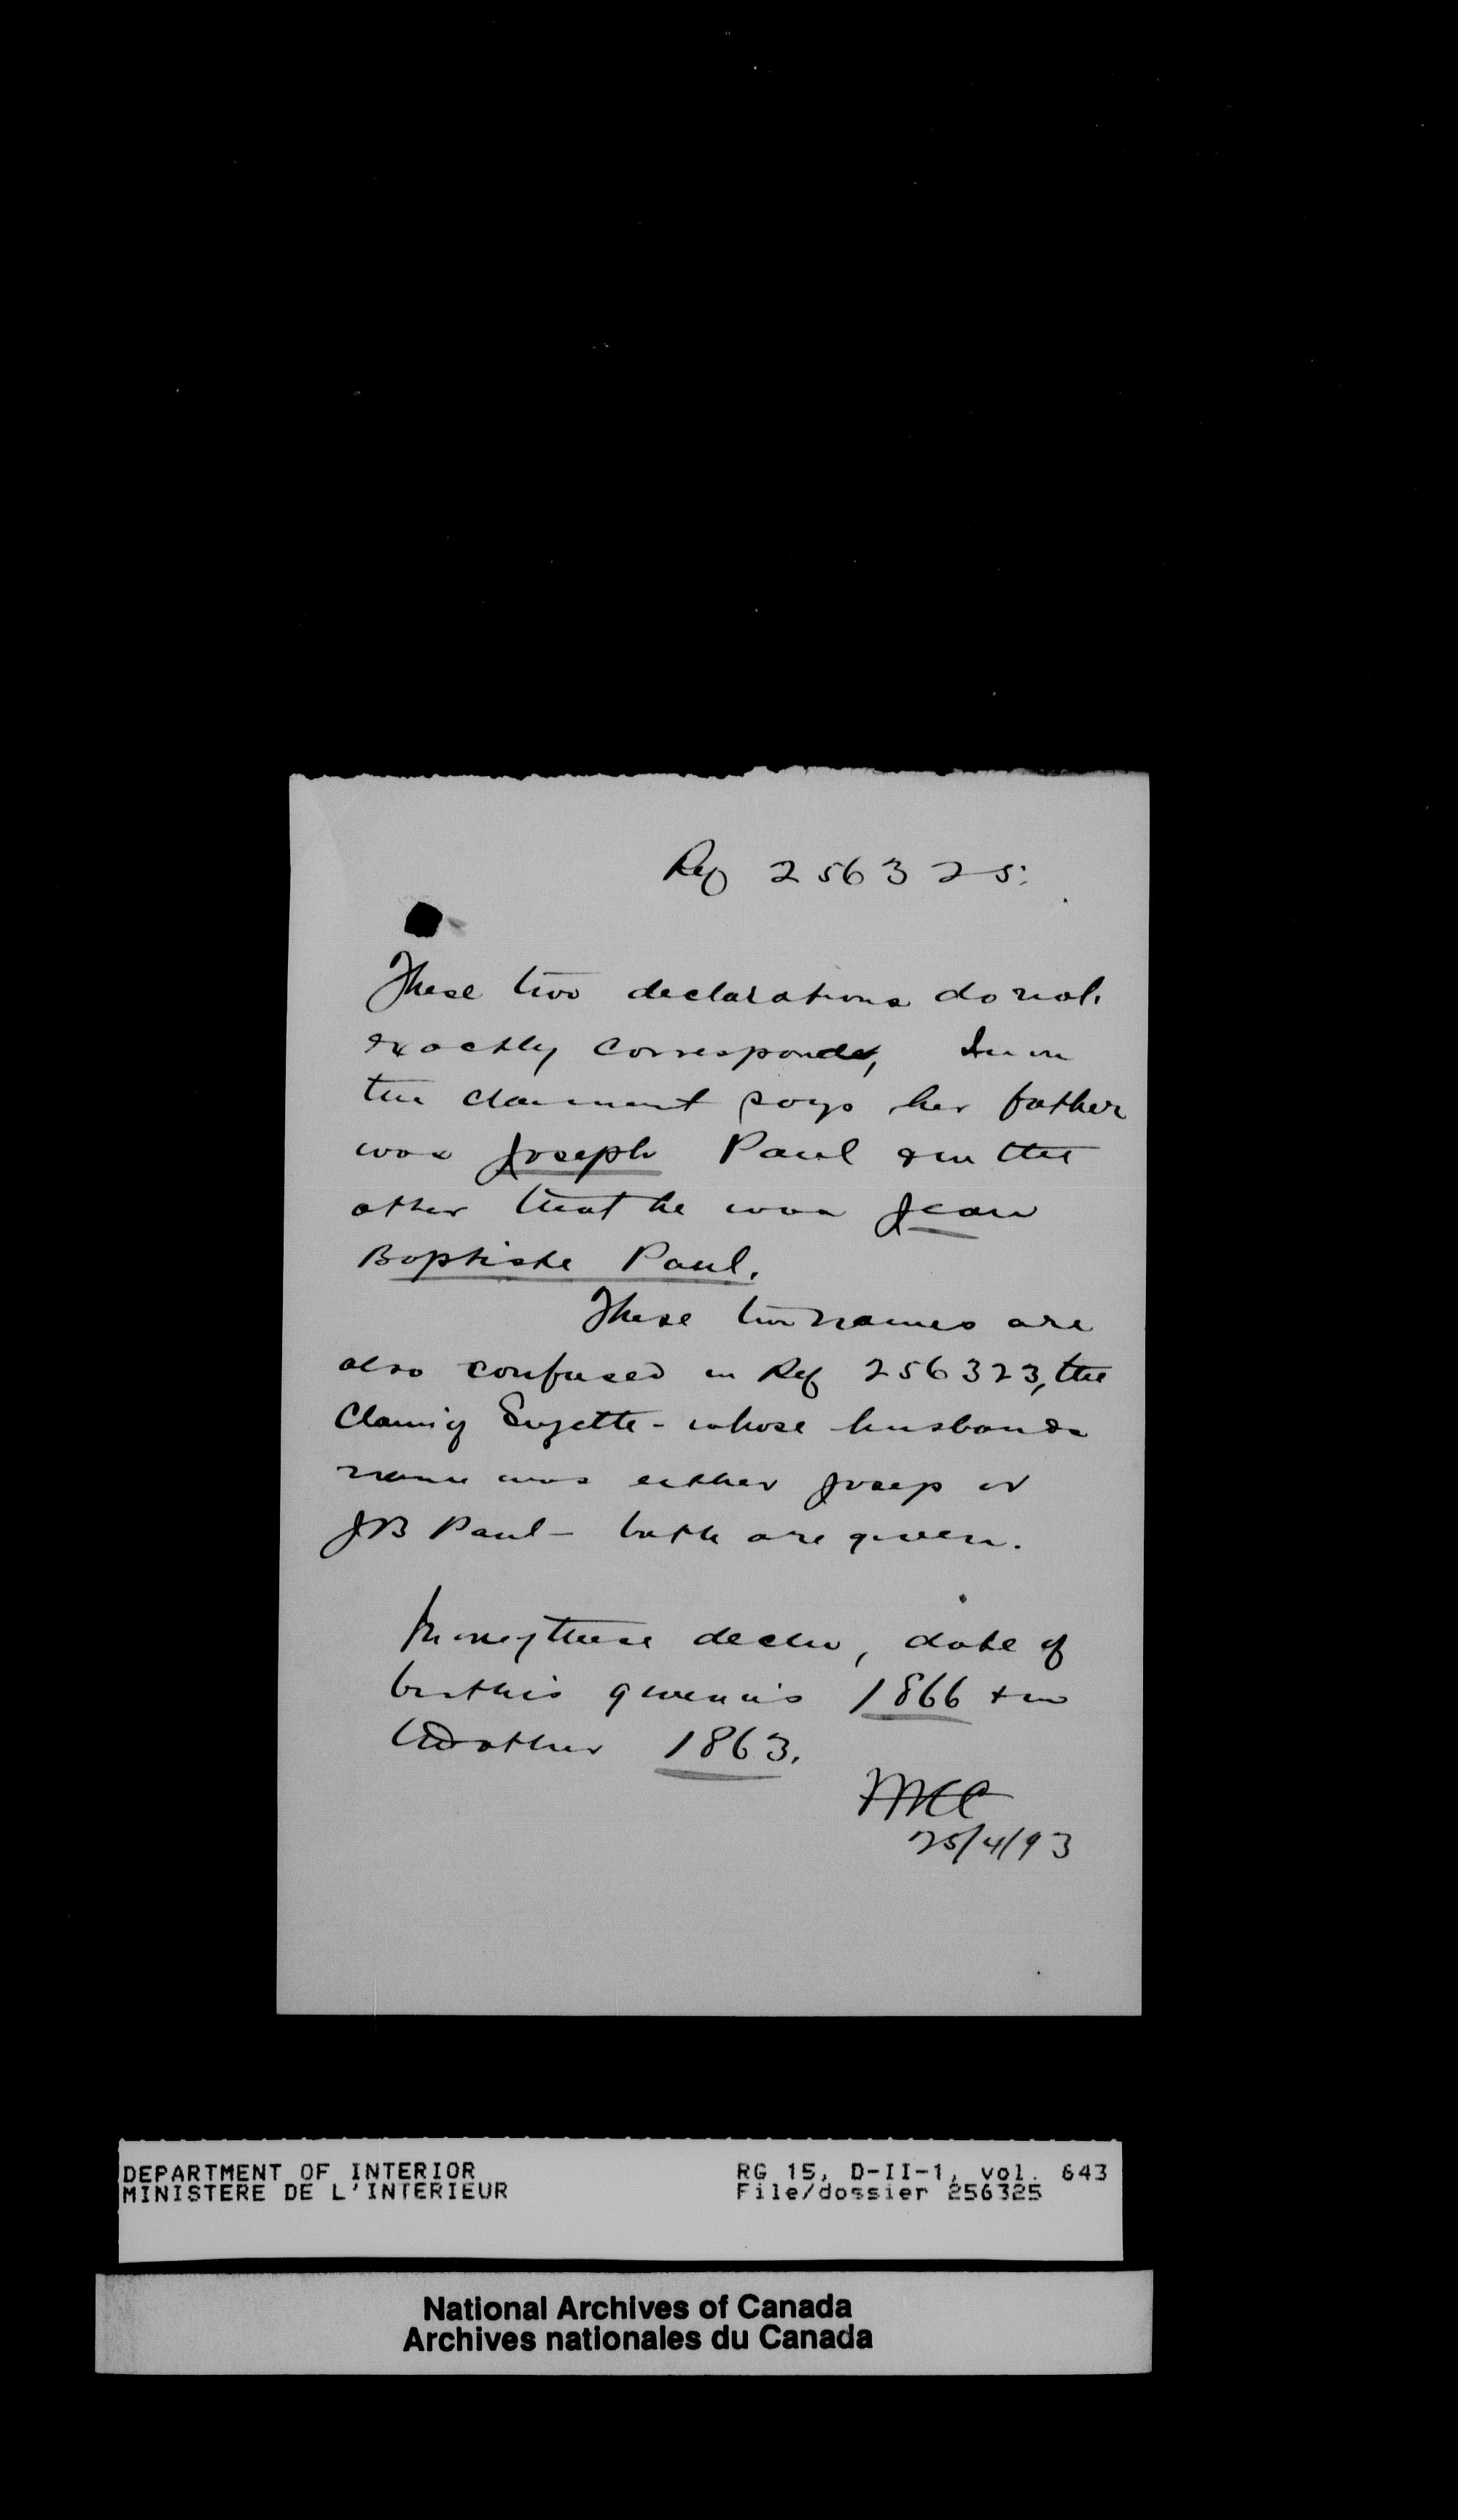 Ref 256325.
These two declarations do not
exactly correspond, In one
the claimant says her father
was Joseph Paul & in the
other that he was Jean
Baptiste Paul.
These two names are
also confused in Ref 256323, the
claim of Suzette - whose husbands
name was either Josep or
JB Paul - both are given.
In one of these decln, date of
birth is given as 1866 & in
the other 1863.
25/4/93
DEPARTMENT OF INTERIOR
MINISTERE DE L'INTERIEUR
RG 15, D-II-1, vol. 643
File/dossier 256325
National Archives of Canada
Archives nationales du Canada